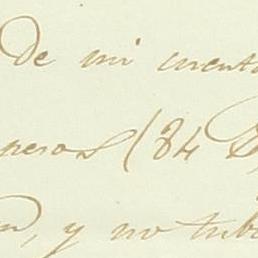 De mi cuenta
pesos (84 $
y no tubo